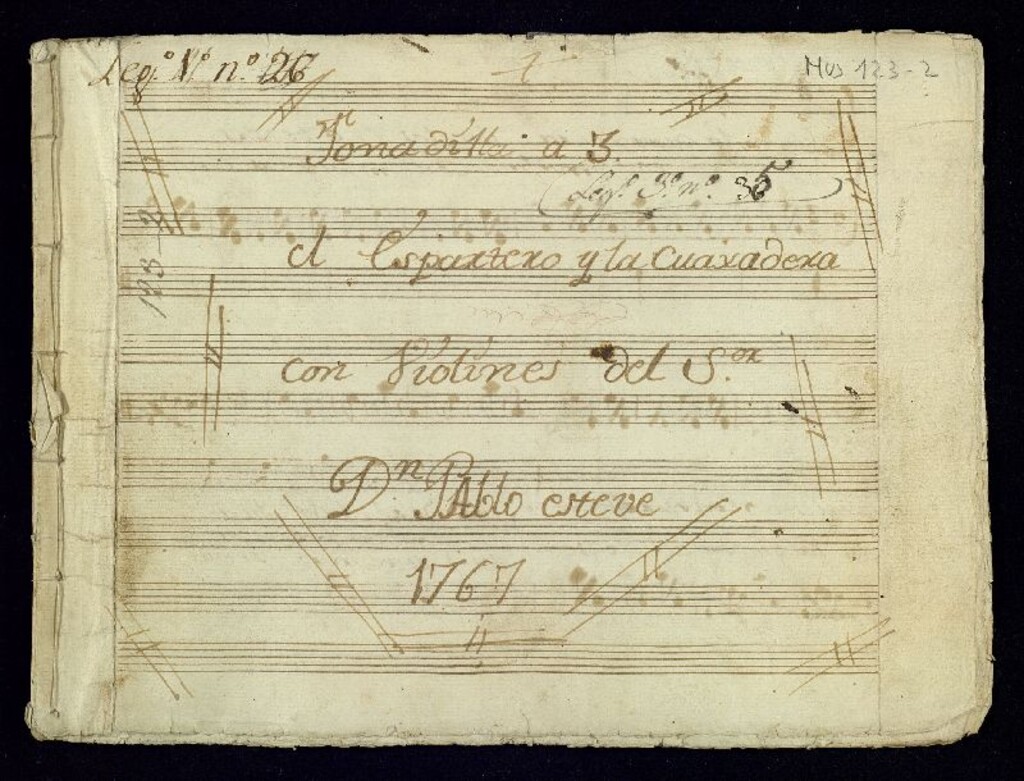 Leg.º 1º n.º 26
Mus 123-2
Tonadilla a 3
Leg.º 3.º n.º 36
el Espartero y la Cuaxadera
123-2
con Violines del S.or
Dn PAblo esteve
1767